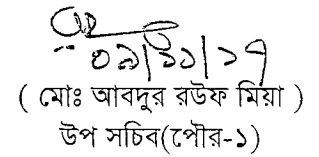 ০৯/১১/১৭
( মোঃ আবদুর রউফ মিয়া )
উপ সচিব(পৌর-১)